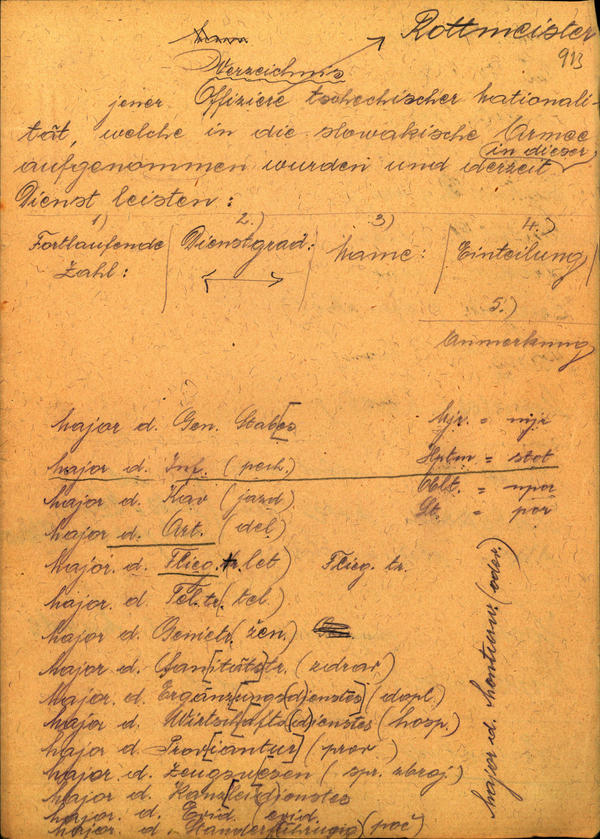 Rottmeister
913
Verzeichnis
jener Offiziere tschechischer Nationali-
tät, welche in die slowakische Armee
aufgenommen wurden und derzeit in dieser
Dienst leisten:
1) 2.) 3) 4.)
Fortlaufende Zahl: Dienstgrad: Name: Einteilung
5.)
Anmerkung
Major d. Gen. Stab[es Mjr. = mjr
Major d. Inf. (pech.) Hptm = stot
Major d. Kav (jazd) Oblt. = npor
Major d. Art. (del) Lt. = por
Major. d. Flieg.tr. let) Flieg. tr.
Major. d. Tel.tr. (tel.)
Major d. Genietr. (žen.)
Major d. San[itäts]tr. (zdrav)
Major. d. Ergänz[ungs(d)ienstes] (dopl.)
Major d. Wirtsch[afts(d)ienstes (hosp.)
Major d Prov[iantur] (prov)
Major. d. Zeugswesen (spr. zbroj.)
Major d. Kanz[lei(d)ienstes
Major. d. Evid. evid.
Major d. (poč)
Major d. Montur. (odev.)